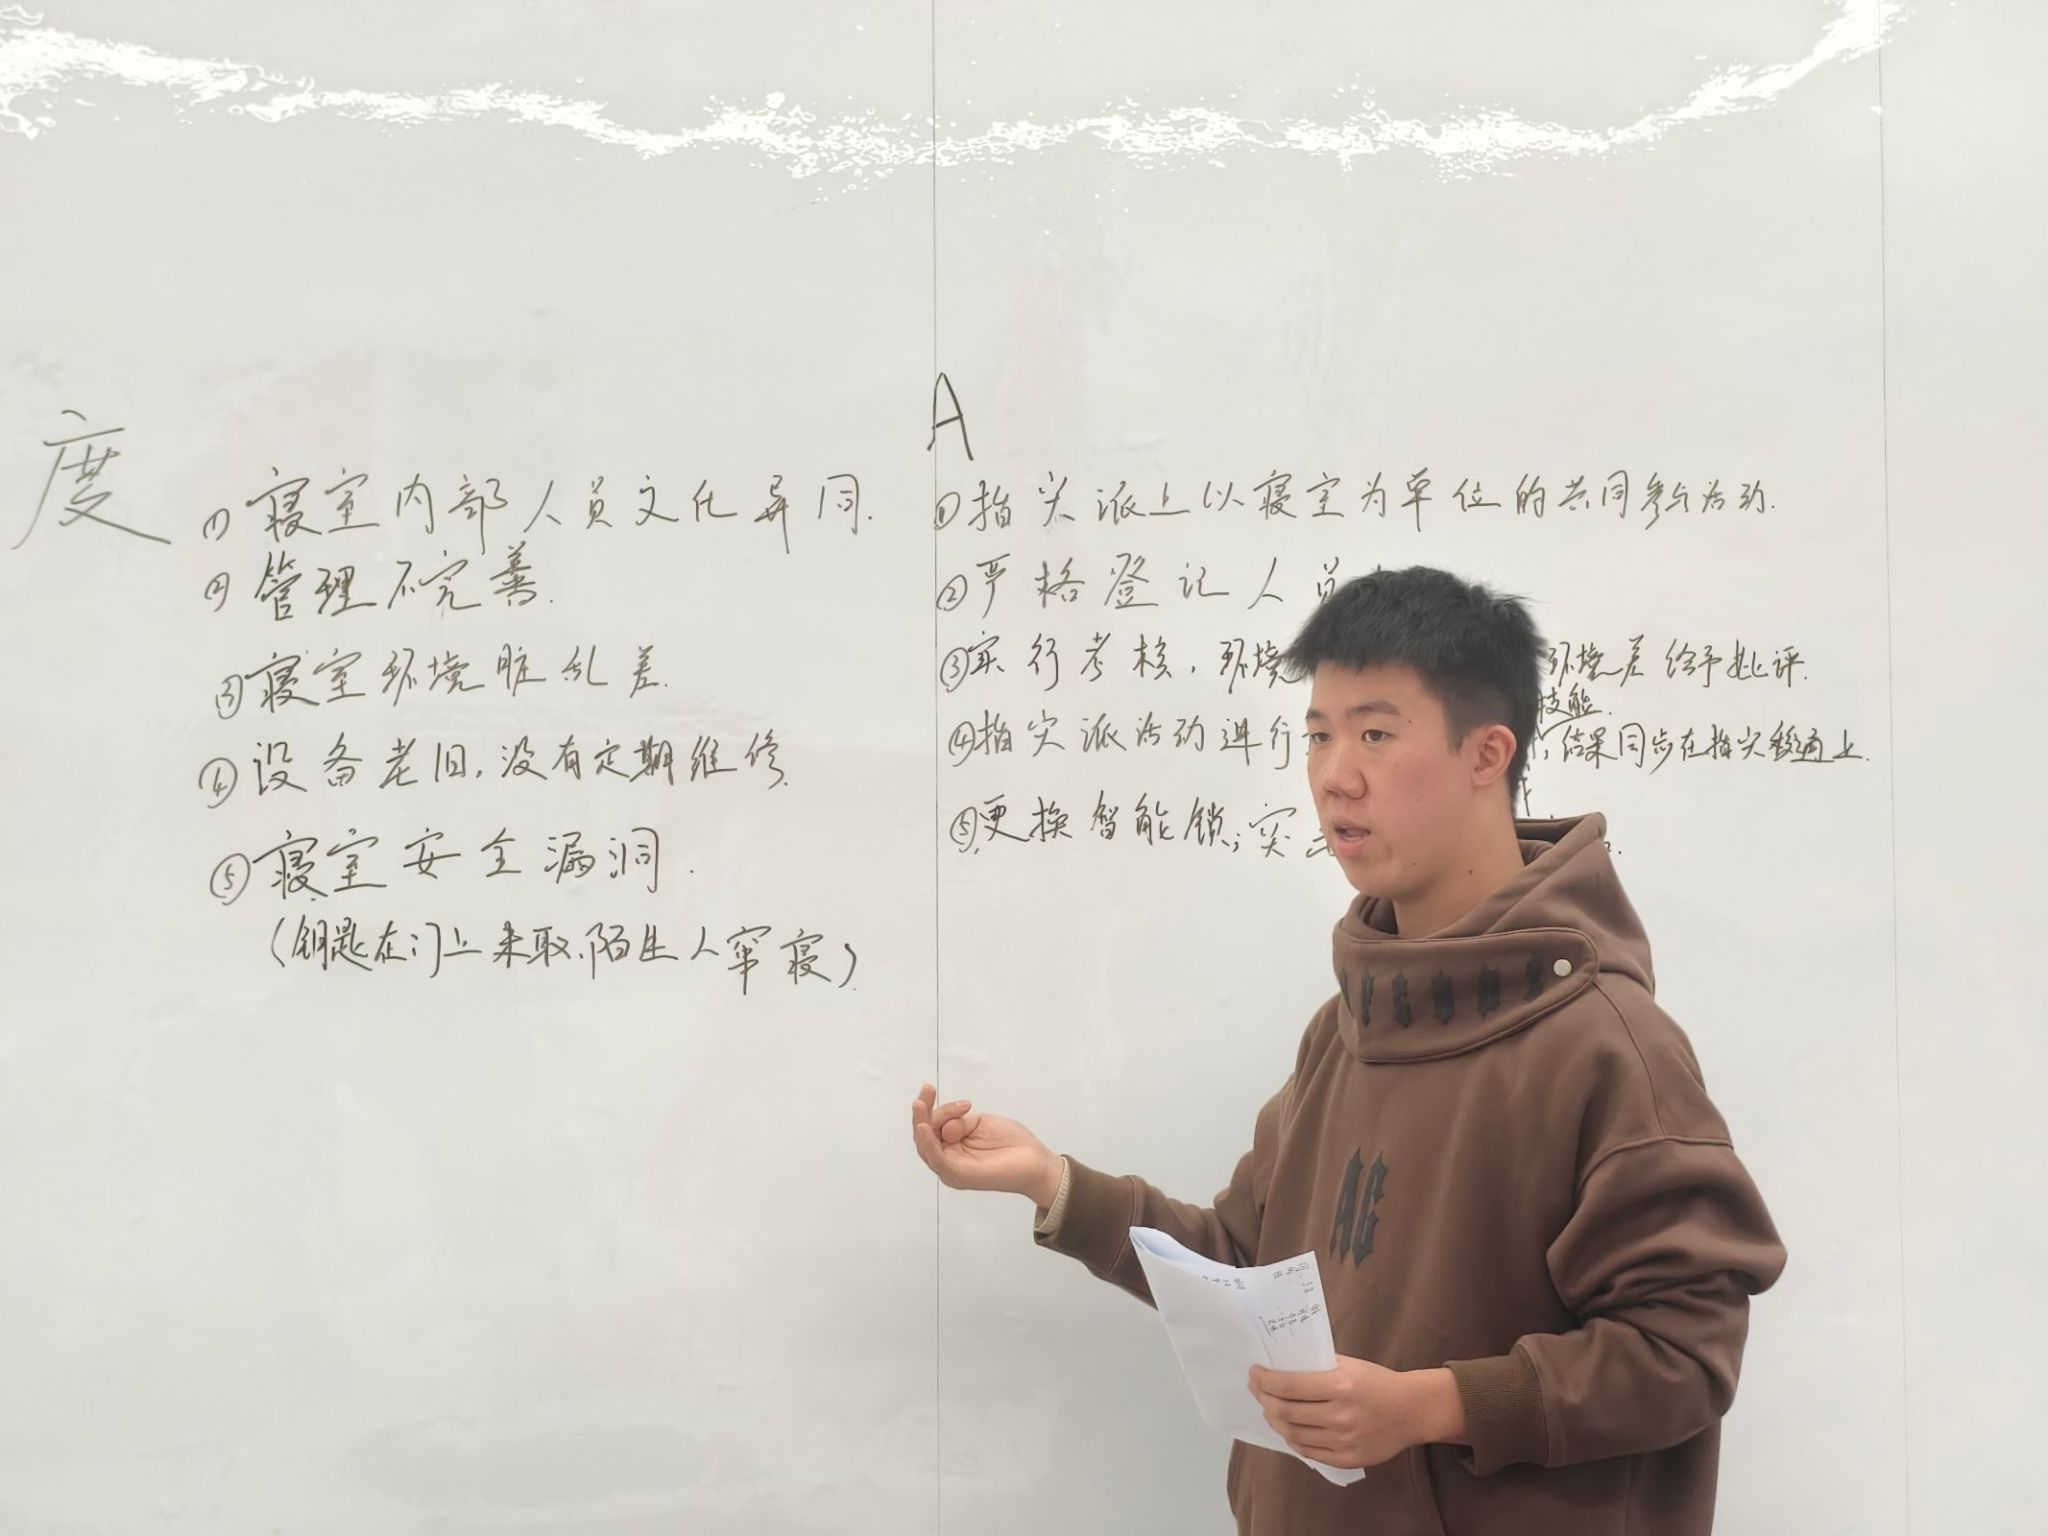 度
A
① 寝室内部人员文化异同.
② 管理不完善.
③ 寝室环境脏乱差.
④ 设备老旧,没有定期维修.
⑤ 寝室安全漏洞.
(钥匙在门上未取.陌生人窜寝).
① 指尖派上以寝室为单位的共同参与活动.
② 严格登记人员
③ 实行考核,环境 环境差给予批评.
技能.
④ 指尖派活动进行 ,结果同步在指尖 通上.
⑤ 更换智能锁;突
AC